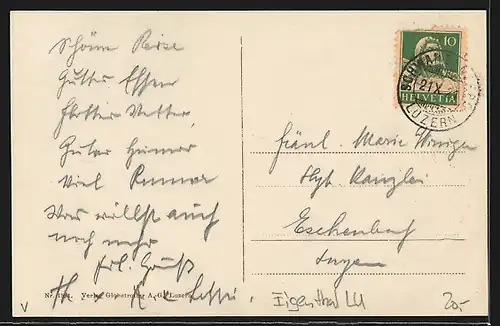 Schöne Reise
Gutes Essen
Flottes Wetter
Guter Humor
Viel Rummel
Was willst auch
noch mehr
frl. Gruß
Nr. Verlag Globetrotter A.-G. Luzern
10
HELVETIA
SCHWARZ
21.X.
LUZERN
Fräul. Marie Winiger
Hyp. Kanzlei
Eschenbach
Luzern
Eigenthal LU
20.-
V